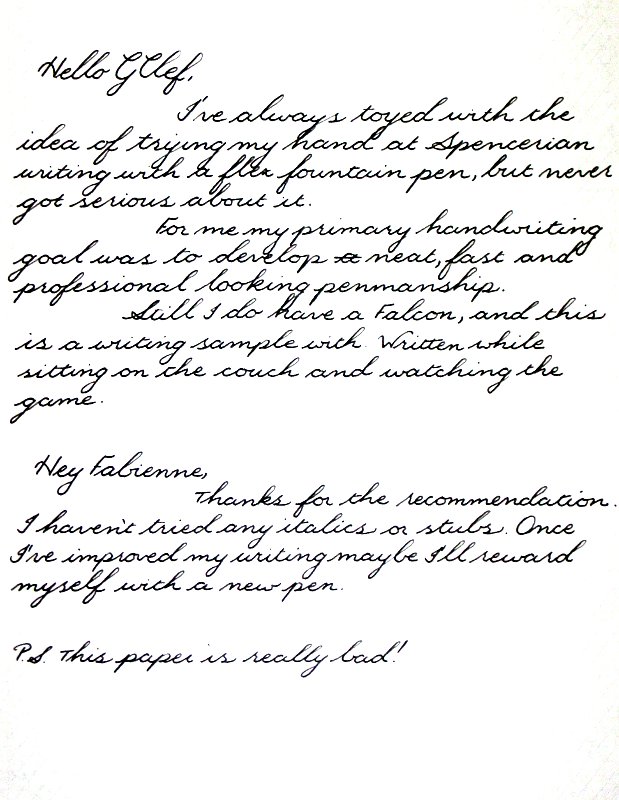 Hello GClef,
I've always toyed with the
idea of trying my hand at Spencerian
writing with a flex fountain pen, but never
got serious about it.
For me my primary handwriting
goal was to develop a neat, fast and
professional looking penmanship.
Still I do have a Falcon, and this
is a writing sample with. Written while
sitting on the couch and watching the
game.
Hey Fabienne,
Thanks for the recommendation.
I haven't tried any italics or stubs. Once
I've improved my writing maybe I'll reward
myself with a new pen.
P.S. This paper is really bad!